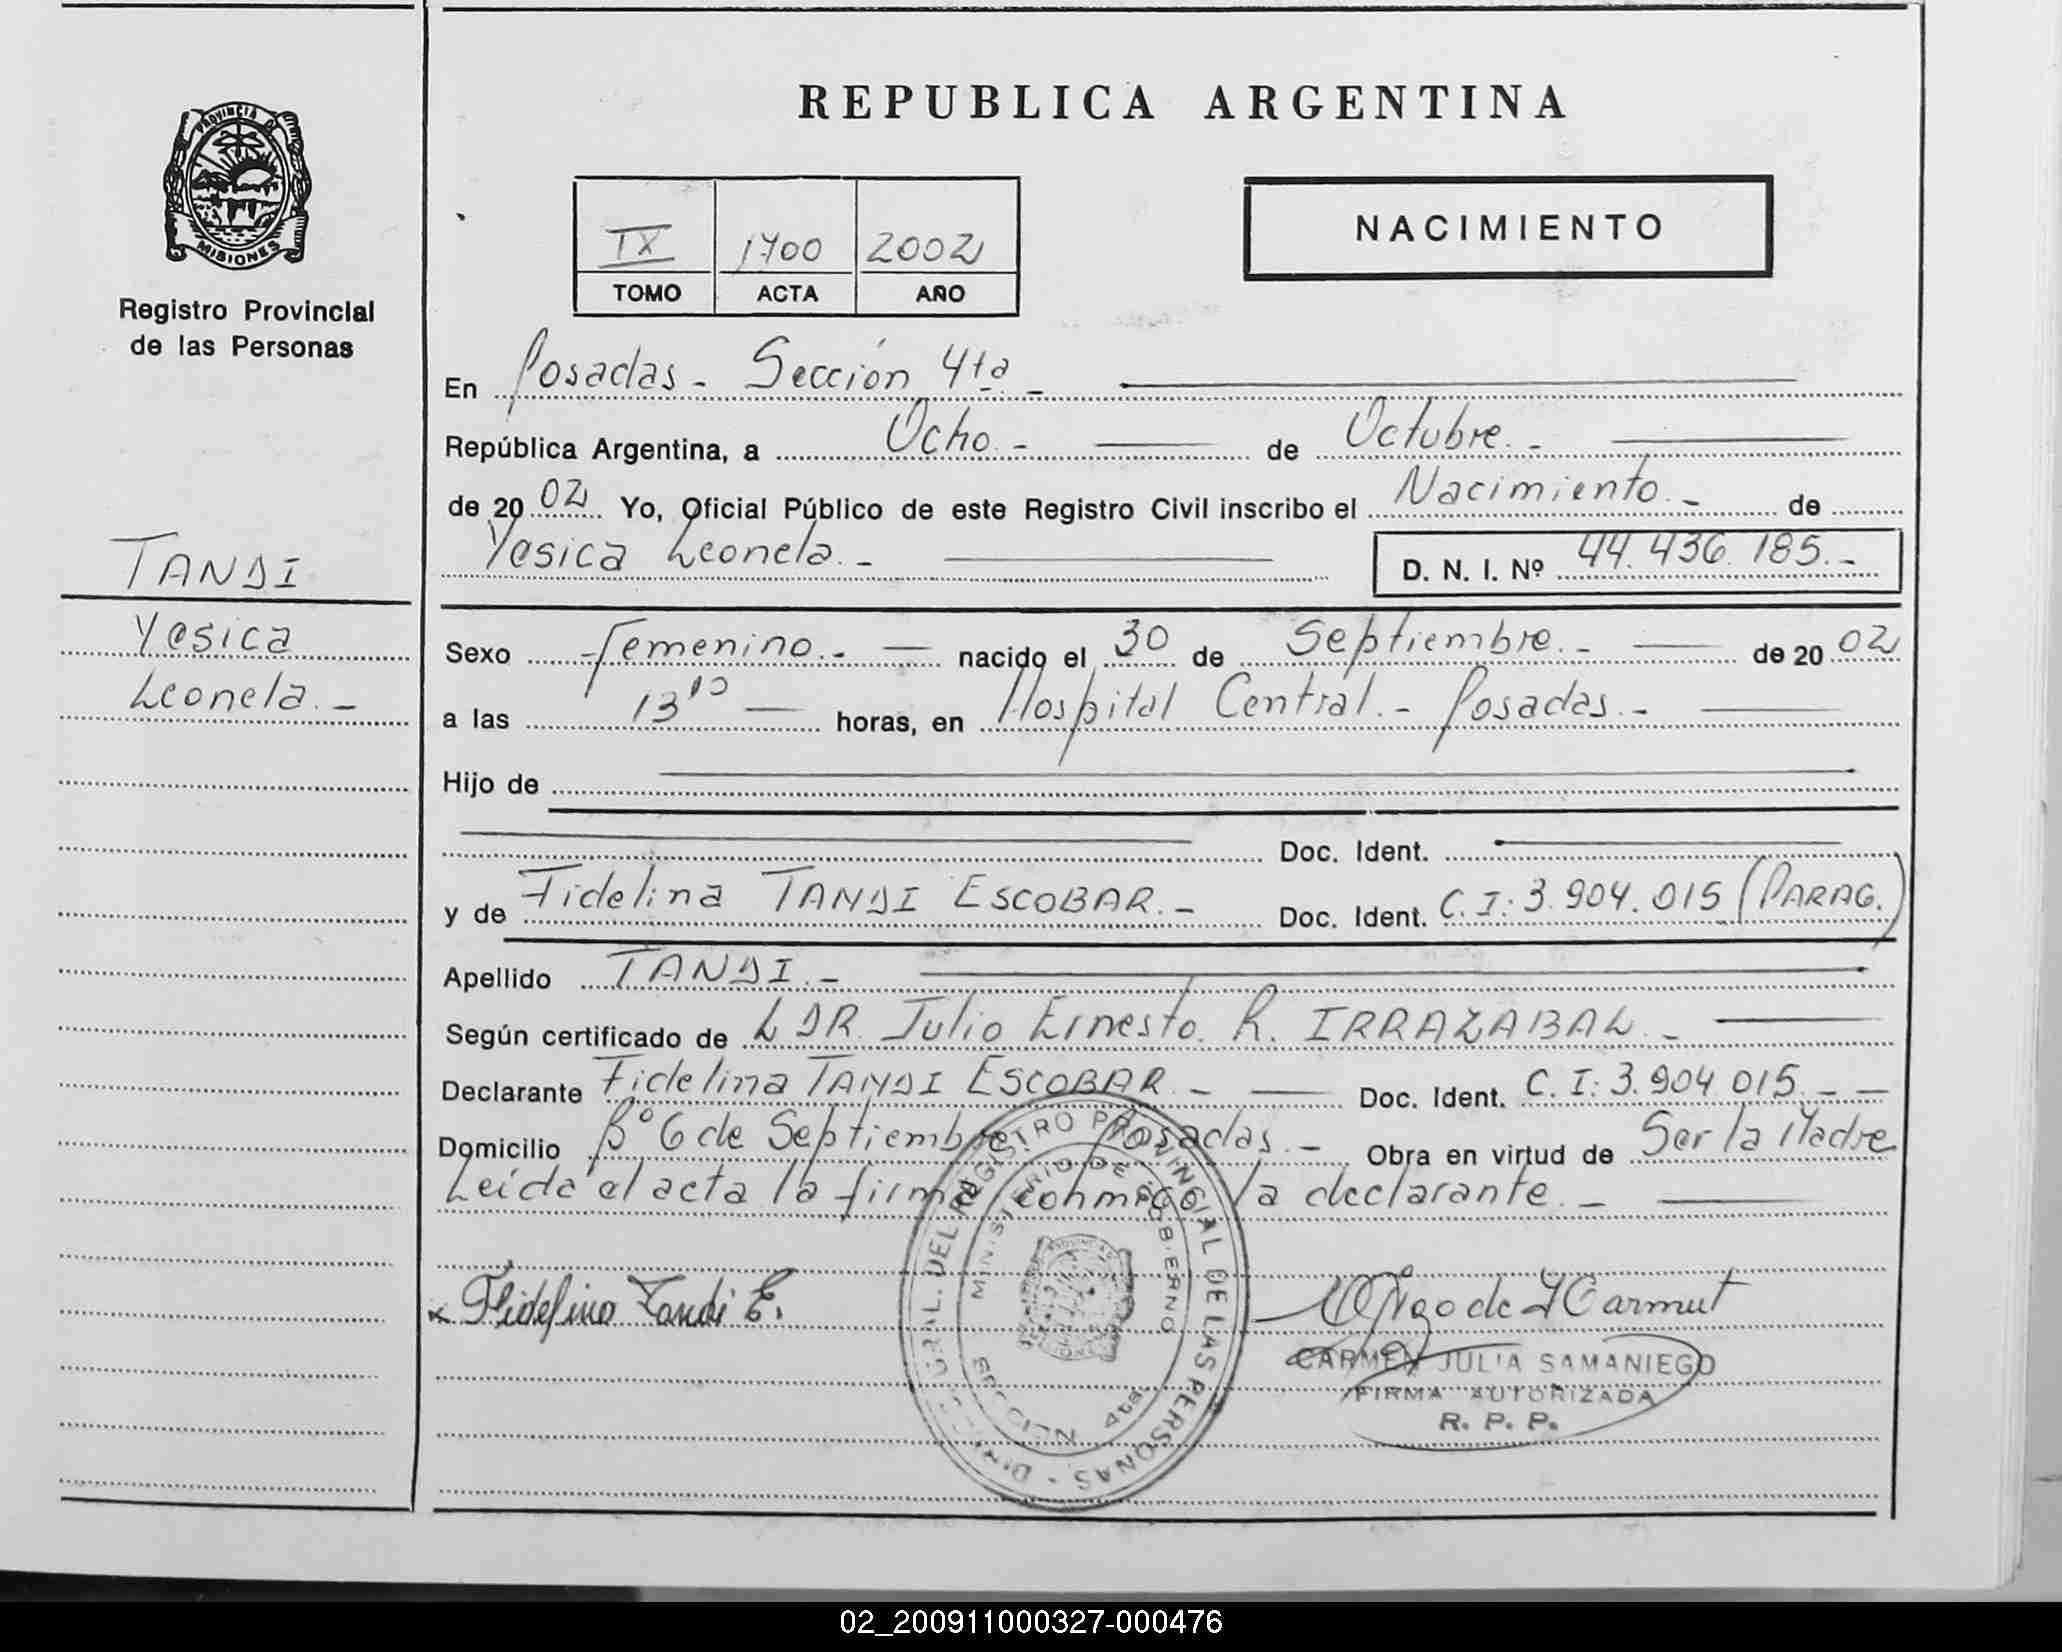 PROVINCIA DE
MISIONES
Registro Provincial
de las Personas
TANDI
Yesica
Leonela.-
REPUBLICA ARGENTINA
IX 1700 2002
TOMO ACTA AÑO
NACIMIENTO
En Posadas - Sección 4ta -
República Argentina, a Ocho.- de Octubre.-
de 2002 Yo, Oficial Público de este Registro Civil inscribo el Nacimiento.- de
Yesica Leonela.- D. N. I. Nº 44.436.185.-
Sexo Femenino.- nacido el 30 de Septiembre.- de 2002
a las 13¹⁰ horas, en Hospital Central.- Posadas.-
Hijo de
Doc. Ident.
y de Fidelina TANDI ESCOBAR.- Doc. Ident. C.I: 3.904.015 (PARAG.)
Apellido TANDI.-
Según certificado de LDR. Julio Ernesto R. IRRAZABAL.-
Declarante Fidelina TANDI ESCOBAR.- Doc. Ident. C.I: 3.904.015.-
Domicilio Bº 6 de Septiembre Posadas.- Obra en virtud de Ser la Madre
Leída el acta la firma conmigo la declarante.-
x Fidelina Tandi E.
CARMEN JULIA SAMANIEGO
FIRMA AUTORIZADA
R. P. P.
GRAL. DEL REGISTRO PROVINCIAL DE LAS PERSONAS
MINISTERIO DE GOBIERNO
SECCION 4ta.
02_200911000327-000476